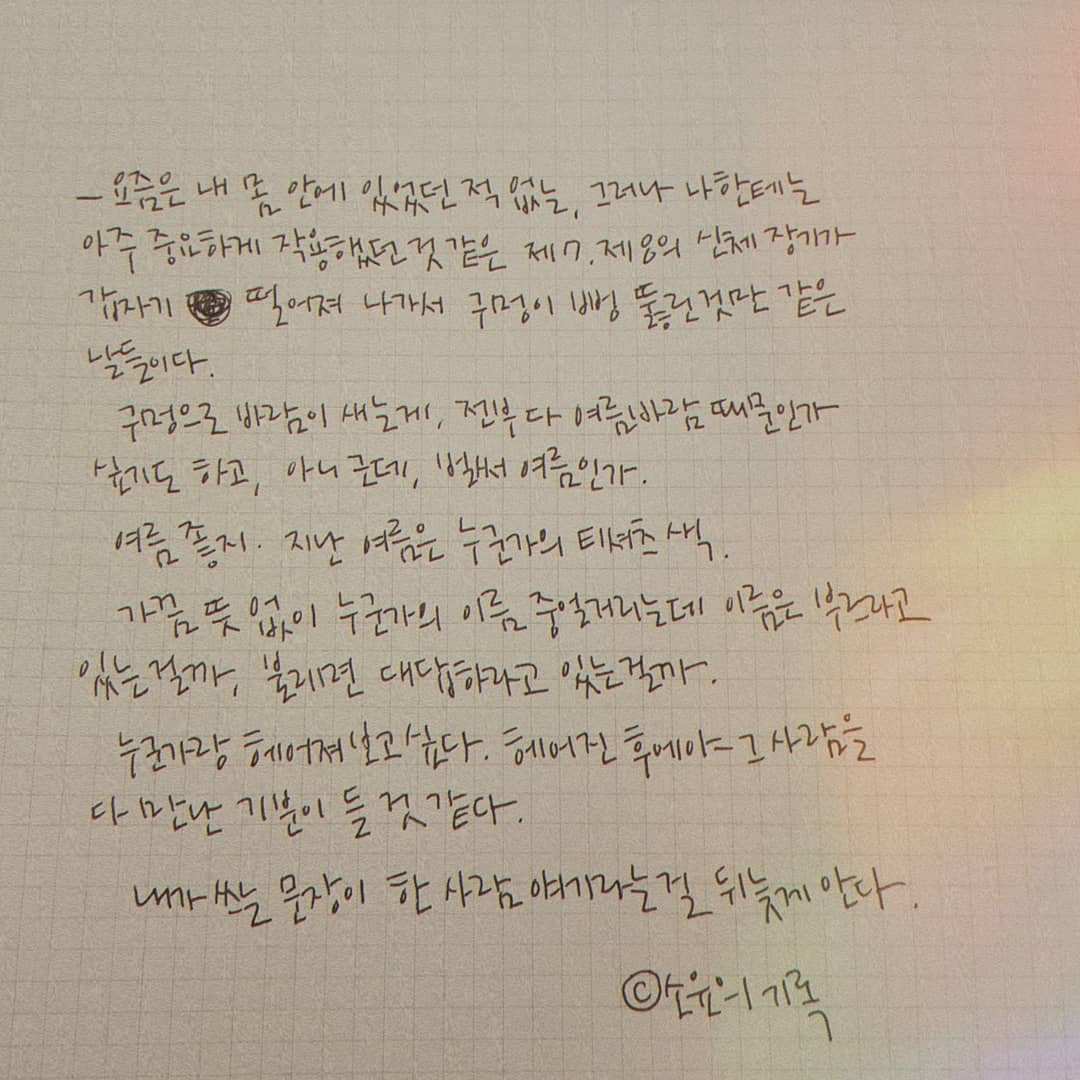 - 요즘은 내 몸 안에 있었던 적 없는, 그러나 나한테는
아주 중요하게 작용했던 것 같은 제7. 제8의 신체 장기가
갑자기 떨어져 나가서 구멍이 뻥 뚫린것만 같은
날들이다.
구멍으로 바람이 새는게, 전부 다 여름바람 때문인가
싶기도 하고, 아니 근데, 벌써 여름인가.
여름 좋지. 지난 여름은 누군가의 티셔츠 색.
가끔 뜻 없이 누군가의 이름 중얼거리는데 이름은 부르라고
있는걸까, 불리면 대답하라고 있는걸까.
누군가랑 헤어져보고싶다. 헤어진 후에야 그 사람을
다 만난 기분이 들 것 같다.
내가 쓰는 문장이 한 사람 얘기라는걸 뒤늦게 안다.
©소윤의 기록